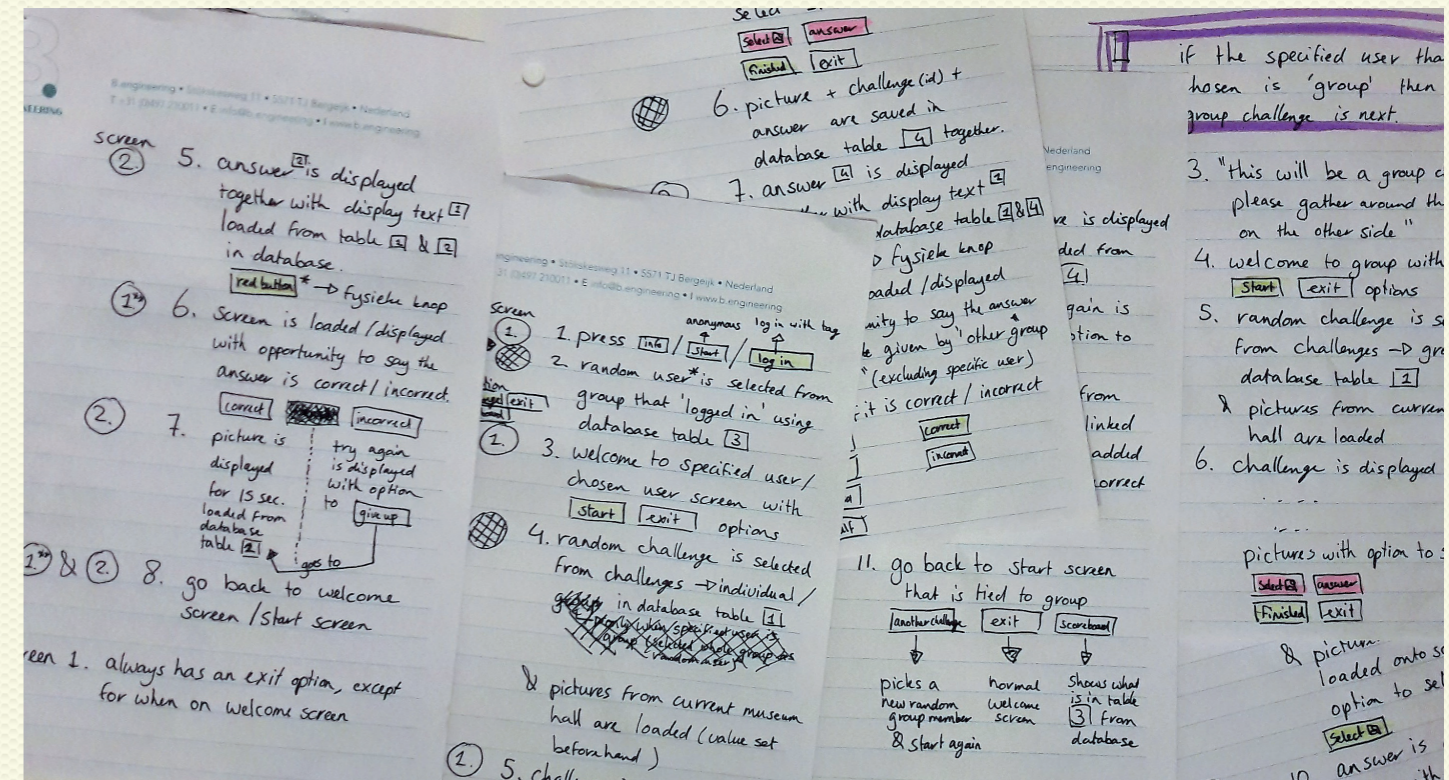 EERING
B.engineering • Stökskesweg 11 • 5571 TJ Bergeijk • Nederland
T +31 (0)497 210011 • E info@b.engineering • I www.b.engineering
screen
2. 5. answer 2 is displayed
together with display text 1
loaded from table 1 & 2
in database.
red button * → fysieke knop
1 6. screen is loaded / displayed
with opportunity to say the
answer is correct / incorrect.
correct incorrect
2. 7.
picture is
displayed
for 15 sec.
loaded from
database
table 2
try again
is displayed
with option
to give up
goes to
1 & 2. 8. go back to welcome
screen / start screen
een 1. always has an exit option, except
for when on welcome screen
select
select answer
finished exit
6. picture + challenge (id) +
answer are saved in
database table 4 together.
7. answer 4 is displayed
with display text 1
database table 1 & 4
fysieke knop
oaded / displayed
nity to say the answer
e given by 'other group
" (excluding specific user)
it is correct / incorrect
correct
incorrect
ngineering • Stökskesweg 11 • 5571 TJ Bergeijk • Nederland
31 (0)497 210011 • E info@b.engineering • I www.b.engineering
screen
anonymous log in with tag
1. 1. press info / start / log in
2. random user* is selected from
group that 'logged in' using
database table 3
tion
exit
1. 3. welcome to specified user /
chosen user screen with
start exit options
4. random challenge is selected
from challenges → individual /
in database table 1
& pictures from current museum
hall are loaded (value set
beforehand)
1. 5.
Nederland
engineering
re is displayed
ded from
4
gain is
ption to
from
linked
added
correct
11. go back to start screen
that is tied to group
another challenge exit scoreboard
picks a
new random
group member
& start again
normal
welcome
screen
shows what
is in table
3 from
database
if the specified user tha
hosen is 'group' then
group challenge is next.
3. "this will be a group c
please gather around th
on the other side"
4. welcome to group with
start exit options
5. random challenge is s
from challenges → gro
database table 1
& pictures from curren
hall are loaded
6. challenge is displayed
pictures with option to s
select answer
finished exit
& picture
loaded onto sc
option to sel
select
10 answer is